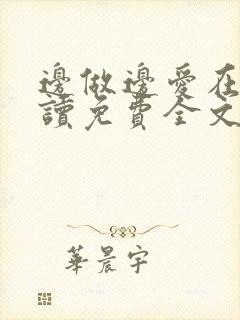 邊做邊愛在
讀免費全文
華晨宇